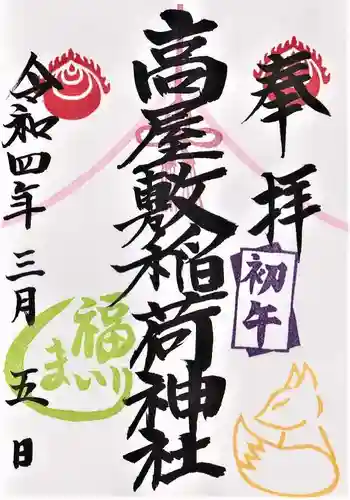 奉拝
初午
高屋敷稲荷神社
福
まいり
令和四年三月五日